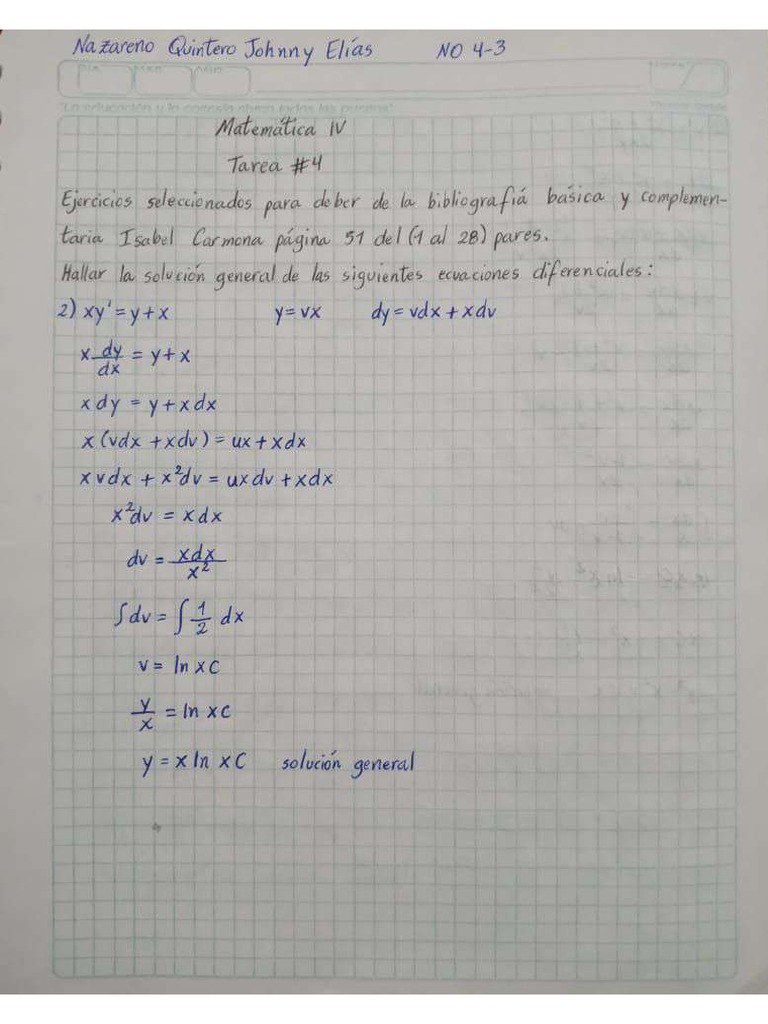 Nazareno Quintero Johnny Elías NO 4-3
"La educación y la consulta abren todas las puertas"
Matemática IV
Tarea #4
Ejercicios seleccionados para deber de la bibliografiá básica y complemen-
taria Isabel Carmona página 51 del (1 al 28) pares.
Hallar la solución general de las siguientes ecuaciones diferenciales:
2) xy' = y+x y=vx dy = vdx + xdv
x dy/dx = y+x
xdy = y+xdx
x (vdx + xdv) = ux + xdx
xvdx + x²dv = uxdv + xdx
x²dv = xdx
dv = xdx/x²
∫dv = ∫ 1/2 dx
v = ln xc
y/x = ln xc
y = x ln xC solución general